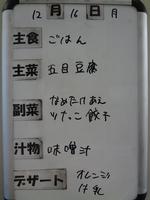 12月16日月
主食 ごはん
主菜 五目豆腐
副菜 なめたけあえ
ツナっこ餃子
汁物 味噌汁
デザート オレンジ
牛乳